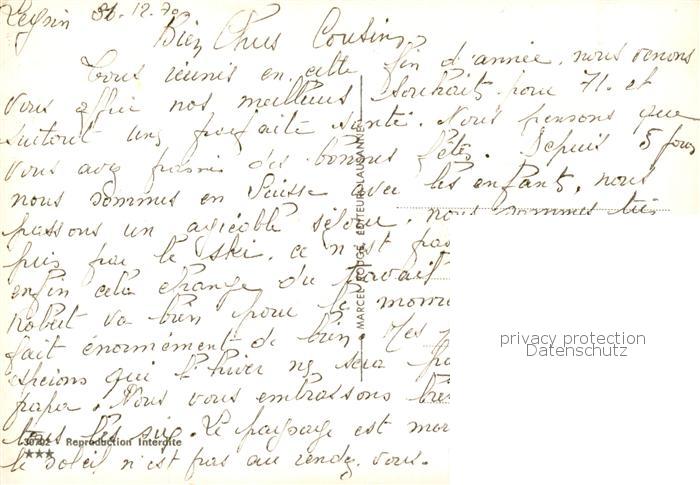 Leysin 30.12.70
Bien Chers Cousins
Tous réunis en cette fin d'année, nous venons
vous offrir nos meilleurs souhaits pour 71. et
surtout une parfaite santé. Nous pensons que
vous avez passé de bonnes fêtes. Depuis 5 jours
nous sommes en Suisse avec les enfants, nous
passons un agréable séjour, nous sommes
pris par le ski. ce n'est pas
enfin cela change du travail
Robert va bien pour le mom
fait énormément de bien. Mes
espérons que l'hiver ne sera
papa. Nous vous embrassons
tous les six. Le paysage est
le soleil n'est pas au rendez-vous.
MARCEL ROUGE, ÉDITEUR, LAUSANNE
30702 Reproduction Interdite
★★★
privacy protection
Datenschutz